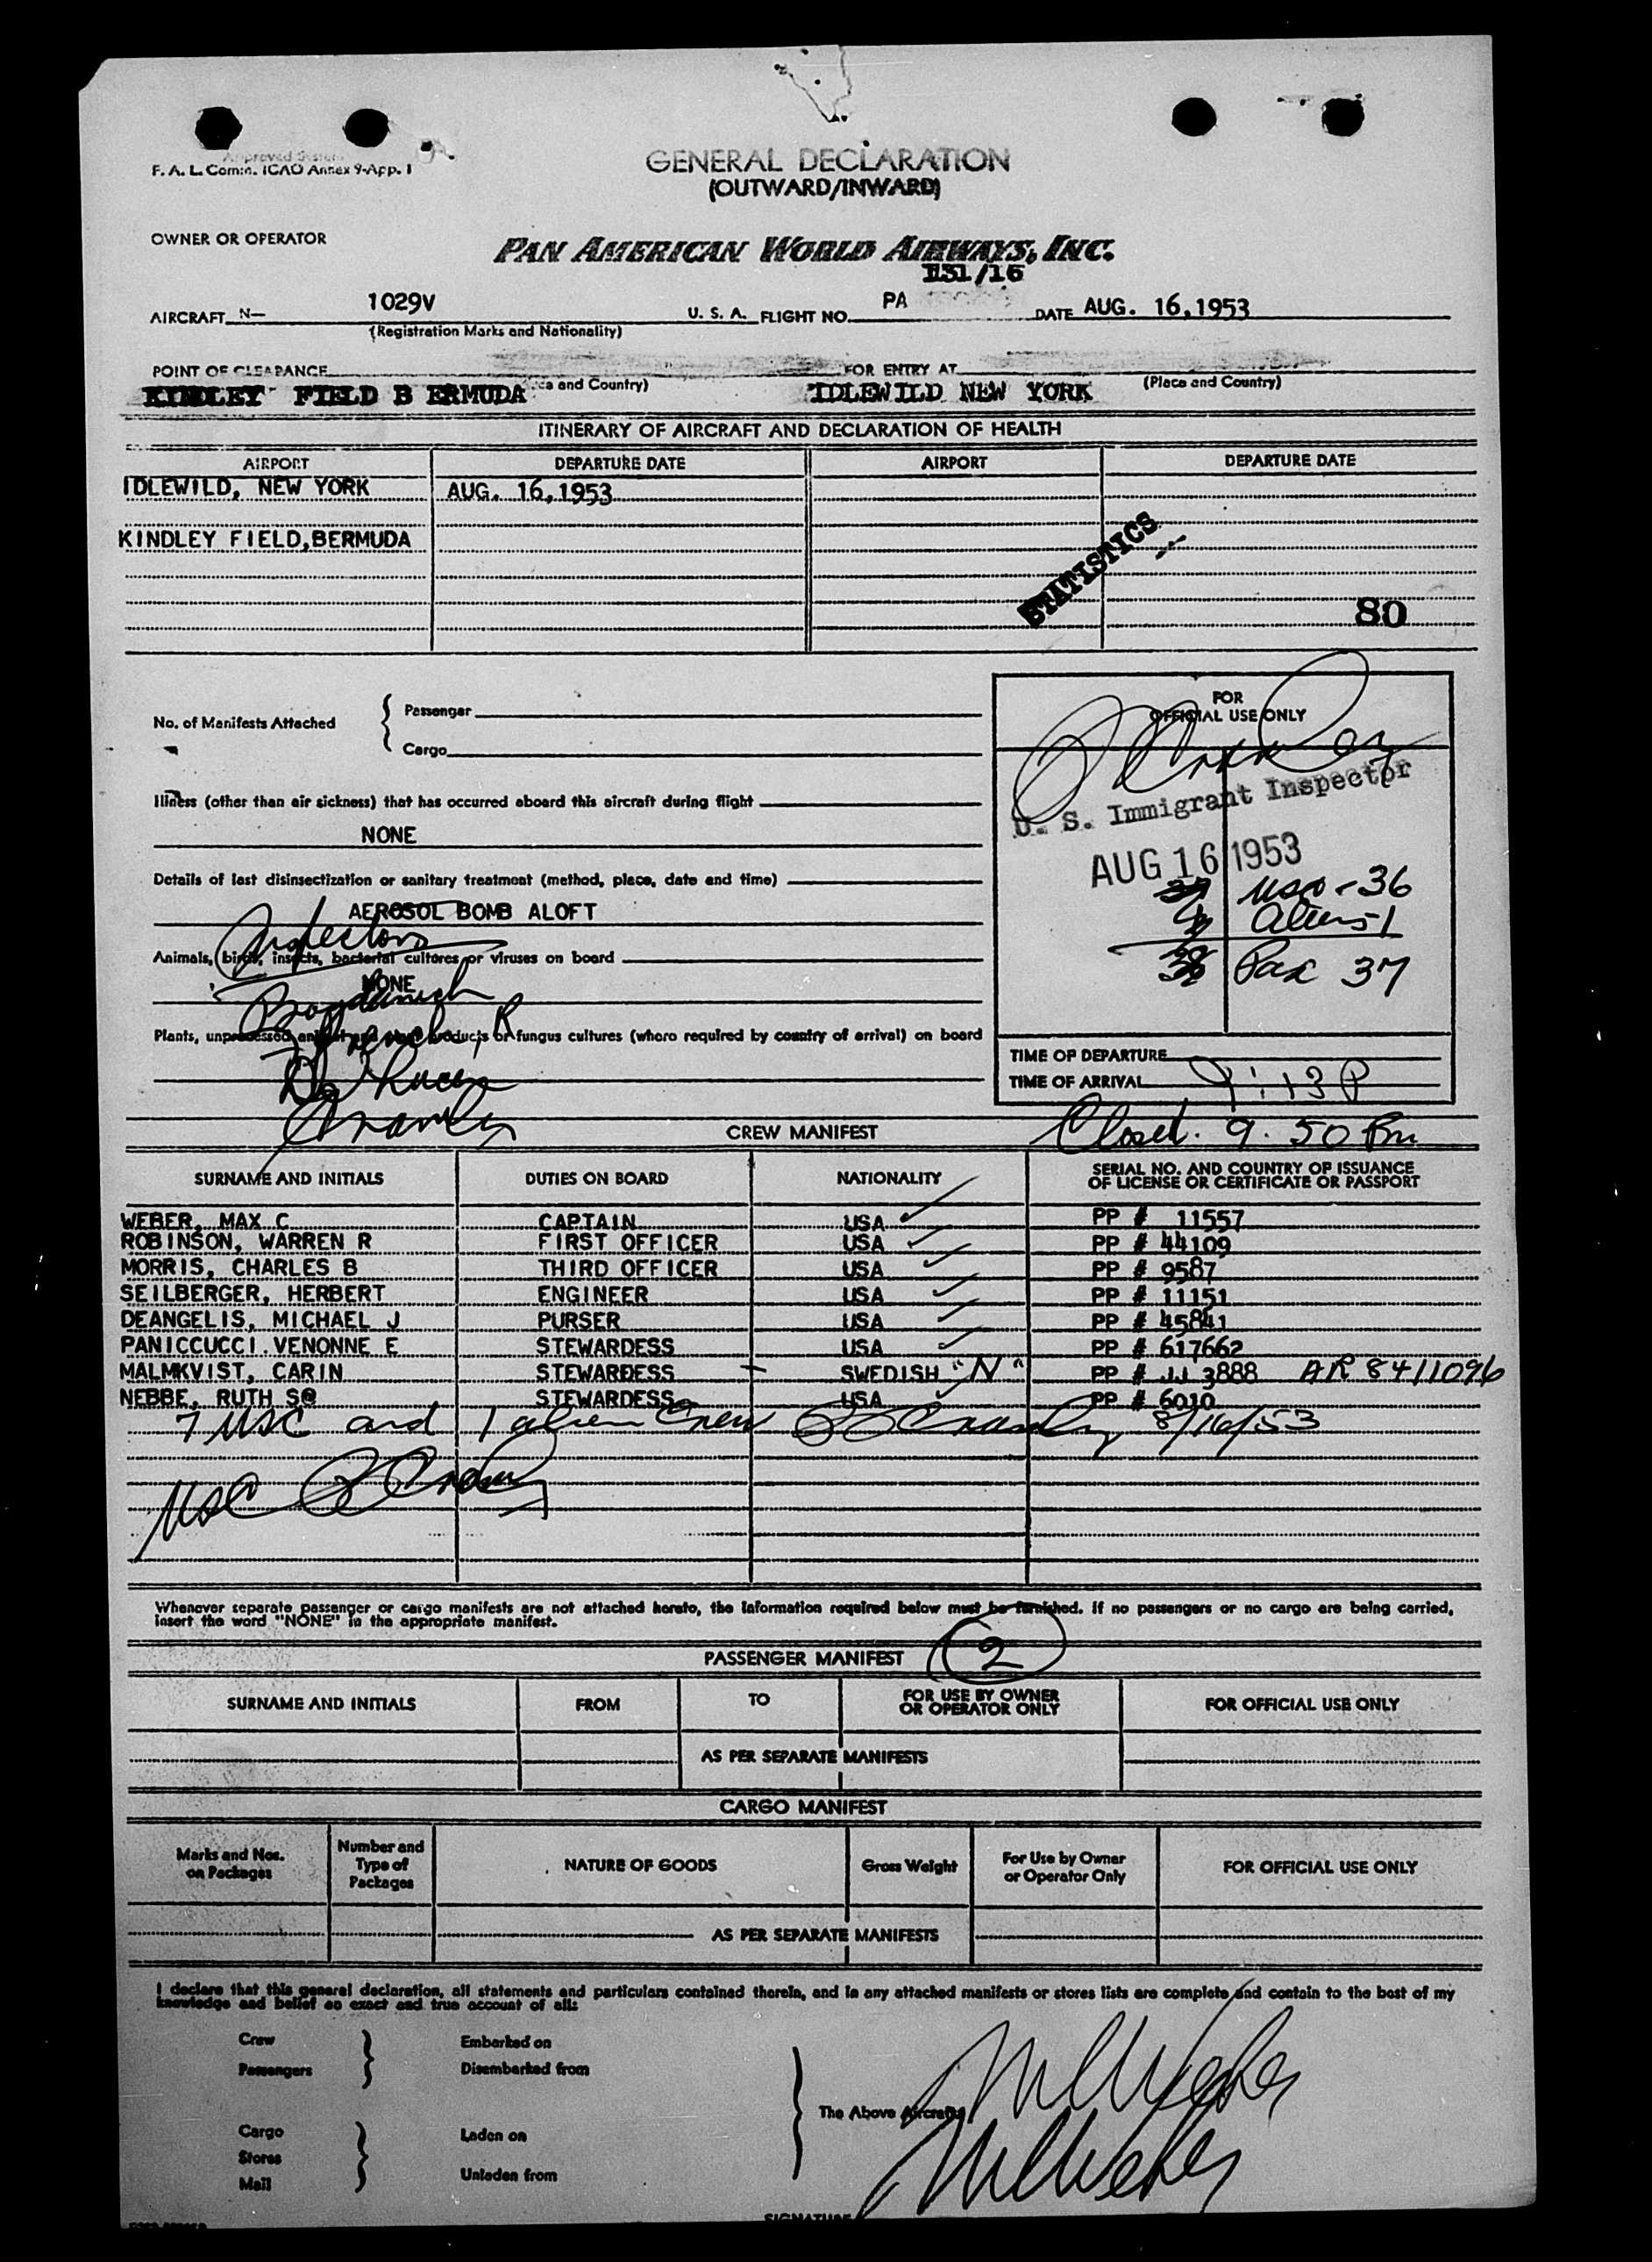 Approved System
F. A. L. Comm. ICAO Annex 9-App. 1
GENERAL DECLARATION
(OUTWARD/INWARD)
OWNER OR OPERATOR
PAN AMERICAN WORLD AIRWAYS, INC.
131/16
AIRCRAFT N- 1029V U. S. A. FLIGHT NO. PA DATE AUG. 16,1953
(Registration Marks and Nationality)
POINT OF CLEARANCE FOR ENTRY AT
KINDLEY FIELD B ERMUDA and Country) IDLEWILD NEW YORK (Place and Country)
ITINERARY OF AIRCRAFT AND DECLARATION OF HEALTH
AIRPORT DEPARTURE DATE AIRPORT DEPARTURE DATE
IDLEWILD, NEW YORK AUG. 16,1953
KINDLEY FIELD,BERMUDA
STATISTICS
80
No. of Manifests Attached
Passenger
Cargo
FOR
OFFICIAL USE ONLY
U. S. Immigrant Inspector
AUG 16 1953
USC - 36
Aliens 1
Pax 37
TIME OF DEPARTURE
TIME OF ARRIVAL 9:13 P
Closed. 9.50 Pm
Illness (other than air sickness) that has occurred aboard this aircraft during flight
NONE
Details of last disinsectization or sanitary treatment (method, place, date and time)
AEROSOL BOMB ALOFT
Inspectors
Animals, birds, insects, bacterial cultures or viruses on board
NONE
Plants, unprocessed products or fungus cultures (where required by country of arrival) on board
CREW MANIFEST
SURNAME AND INITIALS DUTIES ON BOARD NATIONALITY SERIAL NO. AND COUNTRY OF ISSUANCE
OF LICENSE OR CERTIFICATE OR PASSPORT
WEBER, MAX C CAPTAIN USA PP # 11557
ROBINSON, WARREN R FIRST OFFICER USA PP # 44109
MORRIS, CHARLES B THIRD OFFICER USA PP # 9587
SEILBERGER, HERBERT ENGINEER USA PP # 11151
DEANGELIS, MICHAEL J PURSER USA PP # 45841
PANICCUCCI.VENONNE E STEWARDESS USA PP # 617662
MALMKVIST, CARIN STEWARDESS - SWEDISH "N" PP # JJ 3888 AR 8411096
NEBBE, RUTH S@ STEWARDESS USA PP # 6010
7 USC and 1 alien Crew 8/16/53
USC
Whenever separate passenger or cargo manifests are not attached hereto, the information required below must be furnished. If no passengers or no cargo are being carried,
insert the word "NONE" in the appropriate manifest.
PASSENGER MANIFEST 2
SURNAME AND INITIALS FROM TO FOR USE BY OWNER
OR OPERATOR ONLY FOR OFFICIAL USE ONLY
AS PER SEPARATE MANIFESTS
CARGO MANIFEST
Marks and Nos.
on Packages
Number and
Type of
Packages
NATURE OF GOODS Gross Weight For Use by Owner
or Operator Only FOR OFFICIAL USE ONLY
AS PER SEPARATE MANIFESTS
I declare that this general declaration, all statements and particulars contained therein, and in any attached manifests or stores lists are complete and contain to the best of my
knowledge and belief an exact and true account of all:
Crew Embarked on
Passengers Disembarked from
The Above Aircraft
Cargo Laden on
Stores
Mail Unladen from
M C Weber
M C Weber
SIGNATURE